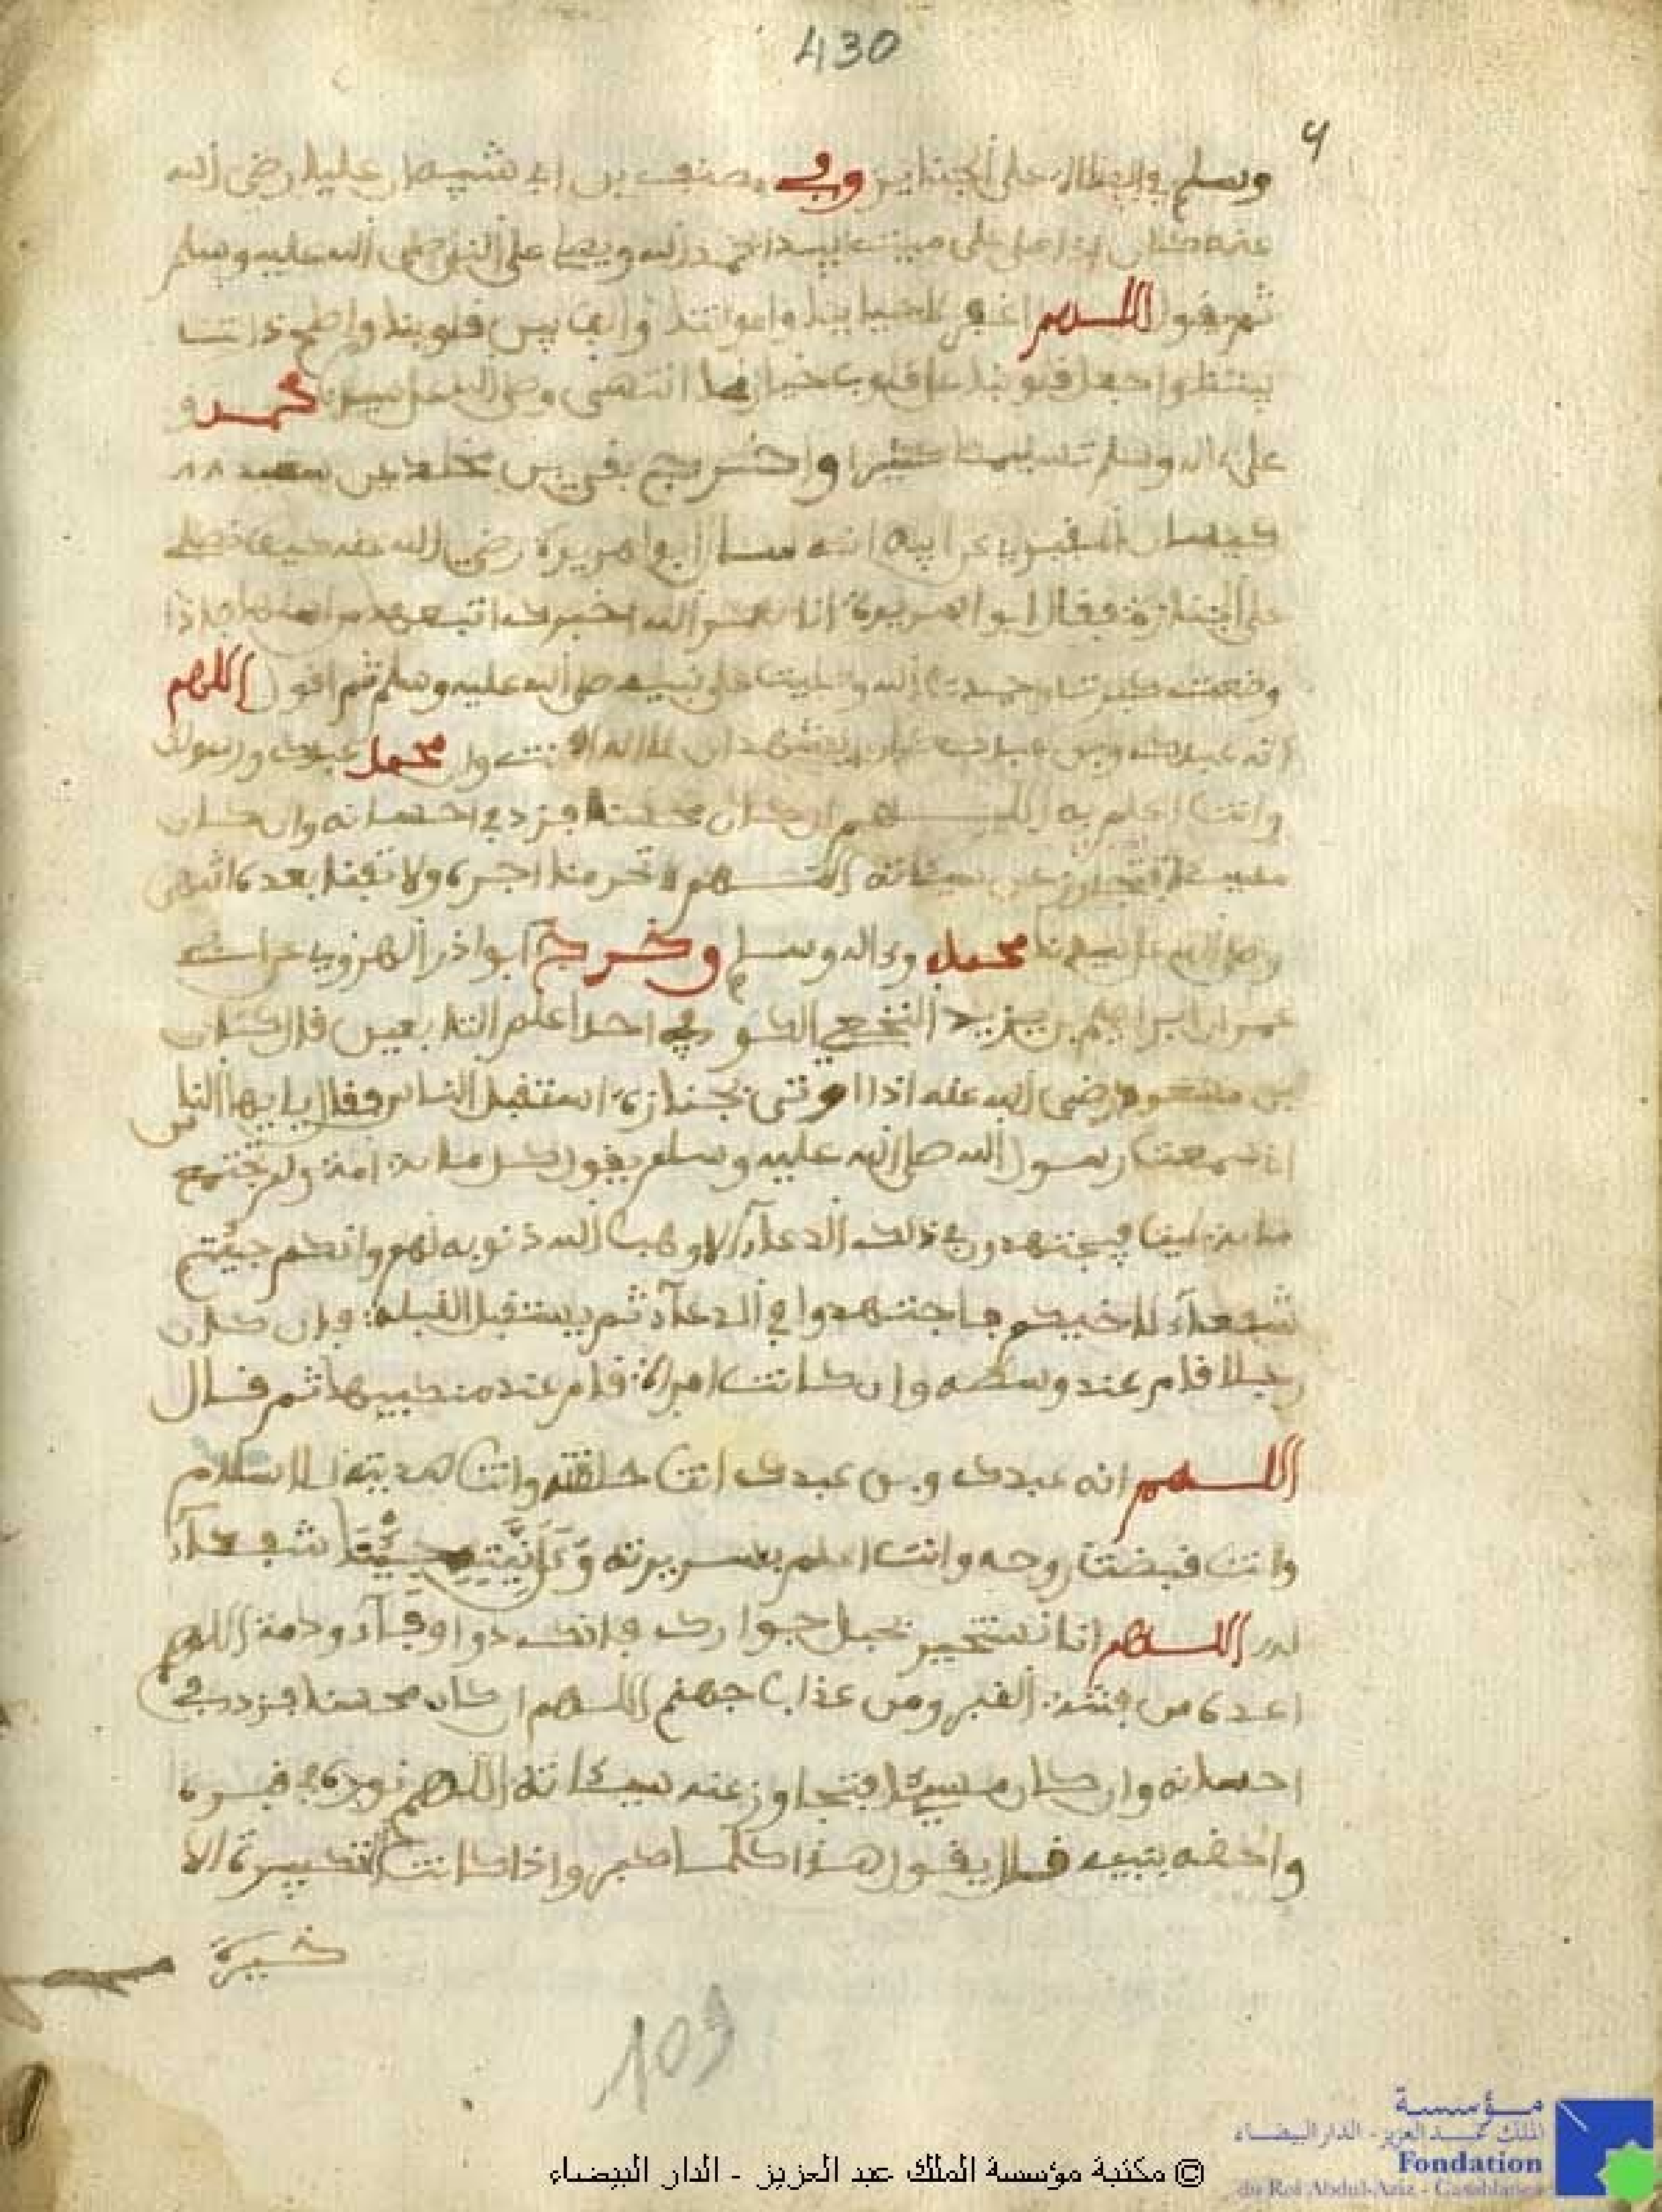 430
9
وسلم في الصلاة على الجنايز وفي مصنف بن ابي شيبة ان عليا رضي الله
عنه كان اذا صلى على ميت يبدا بحمد الله ويصلي على النبي صلى الله عليه وسلم
ثم يقول اللهم اغفر لاحياينا وامواتنا والف بين قلوبنا واصلح ذات
بيننا واجعل قلوبنا على قلوب خيارنا انتهى وصلى الله على سيدنا محمد و
على ءاله وسلم تسليما كثيرا واخرج بقي بن مخلد بن سعيد
كيسان المقبري عن ابيه انه سال ابا هريرة رضي الله عنه كيف تصلي
على الجنازة فقال ابو هريرة انا لعمر الله اخبرك اتبعها من اهلها فاذا
وضعت كبرت وحمدت الله وصليت على نبيه صلى الله عليه وسلم ثم اقول اللهم
انه عبدك وبن عبدك كان يشهد ان لا اله الا انت وان محمد عبدك ورسولك
وانت اعلم به اللهم ان كان محسنا فزد في احسانه وان كان
مسيئا فتجاوز عن سيئاته اللهم لا تحرمنا اجره ولا تفتنا بعده انتهى
وصلى الله على سيدنا محمد وءاله وسلم وخرج ابوا ذر الهروي
ابراهيم بن يزيد النخعي الكوفي احد اعلم التابعين قال كان
بن مسعود رضي الله عنه اذا اوتي بجنازة استقبل الناس وقال يا يها الناس
اني سمعت رسول الله صلى الله عليه وسلم يقول كل ماية امة ولم تجتمع
ماية لميت فيجتهدون في ذلك الدعاء الا وهب الله ذنوبه لهم وانكم جيتم
شفعاء لاخيكم فاجتهدوا في الدعاء ثم يستقبل القبلة فان كان
رجلا قام عند وسطه وان كانت امراة قام عند منكبيها ثم قال
اللهم انه عبدك وبن عبدك انت خلقته وانت هديته للاسلام
وانت قبضت روحه وانت اعلم بسريرته وعلانيته جئنا شفعاء
له اللهم انا نستجير بحبل جوارك فانك ذوا وفاء وذمة اللهم
اعذه من فتنة القبر ومن عذاب جهنم اللهم ان كان محسنا فزد في
احسانه وان كان مسيئا فتجاوز عنه سيئاته اللهم نور له في قبره
والحقه بنبيه قال يقول هذا كلما كبر واذا كانت التكبيرة الا
خيرة
103
© مكتبة مؤسسة الملك عبد العزيز - الدار البيضاء
مؤسسة
الملك عبد العزيز - الدار البيضاء
Fondation
du Roi Abdul-Aziz - Casablanca